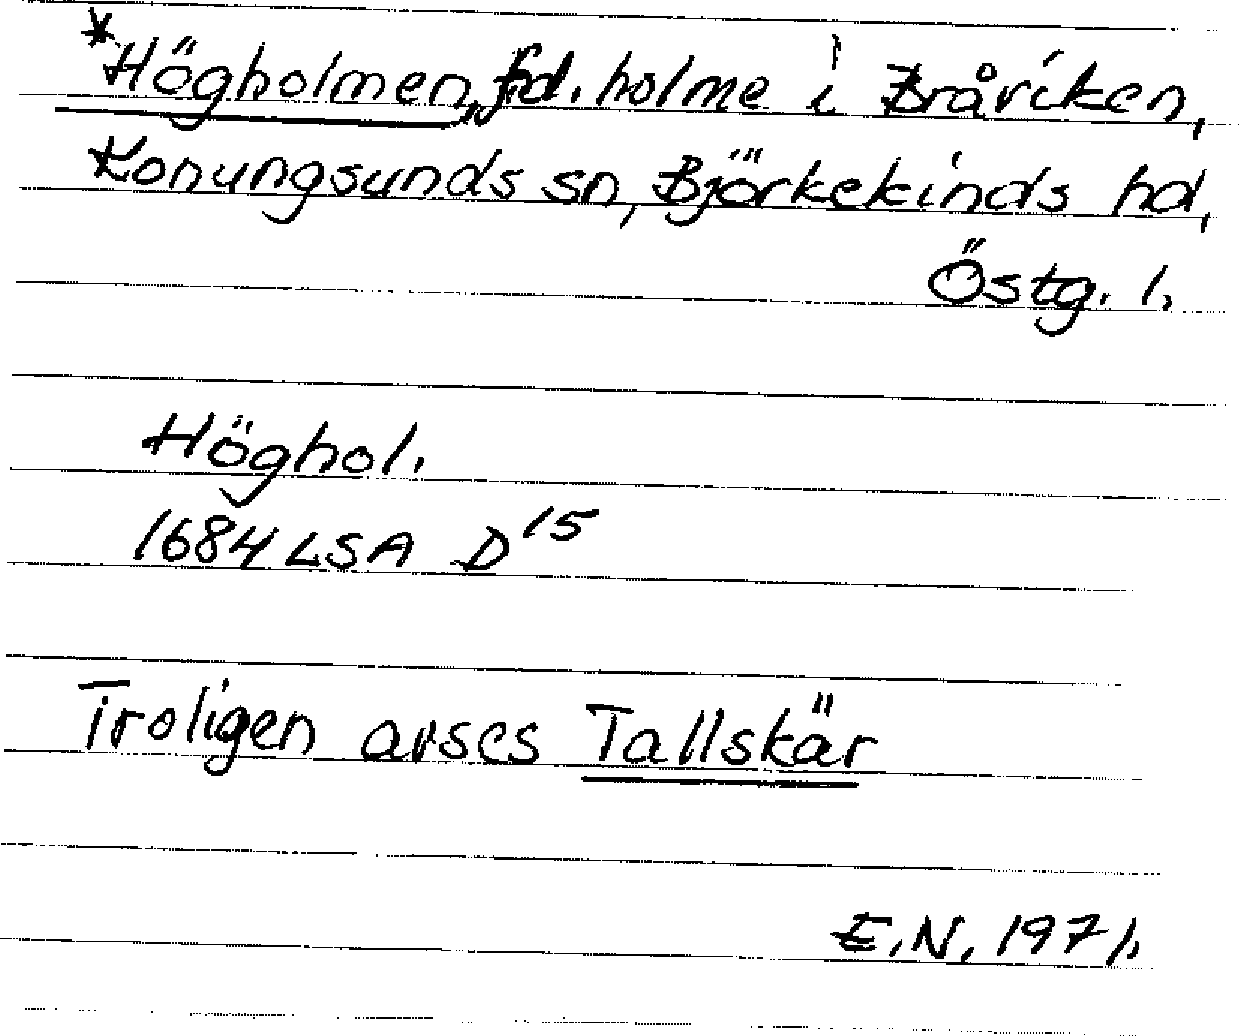 *Högholmen, fd. holme i Bråviken,
Konungsunds sn, Björkekinds hd,
Östg. l.
Höghol.
1684 LSA D15
Troligen avses Tallskär
E.N. 1971.